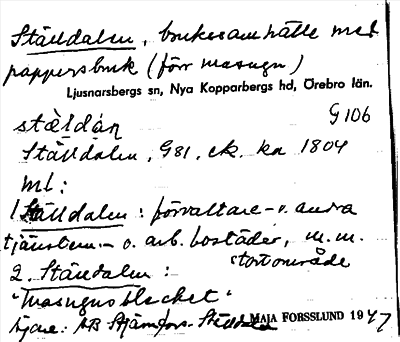 Ställdalen, brukssamhälle med
pappersbruk (förr masugn)
Ljusnarsbergs sn, Nya Kopparbergs hd, Örebro län.
G 106
Ställdalen, G81, ek. ka 1804
ml:
1. Ställdalen: förvaltare- o. andra
tjänstem.- o. arb. bostäder, m.m.
stort område
2. Ställdalen:
"masugnsblecket"
Ägare: AB Stjärnfors-Ställdalen
MAJA FORSSLUND 1947